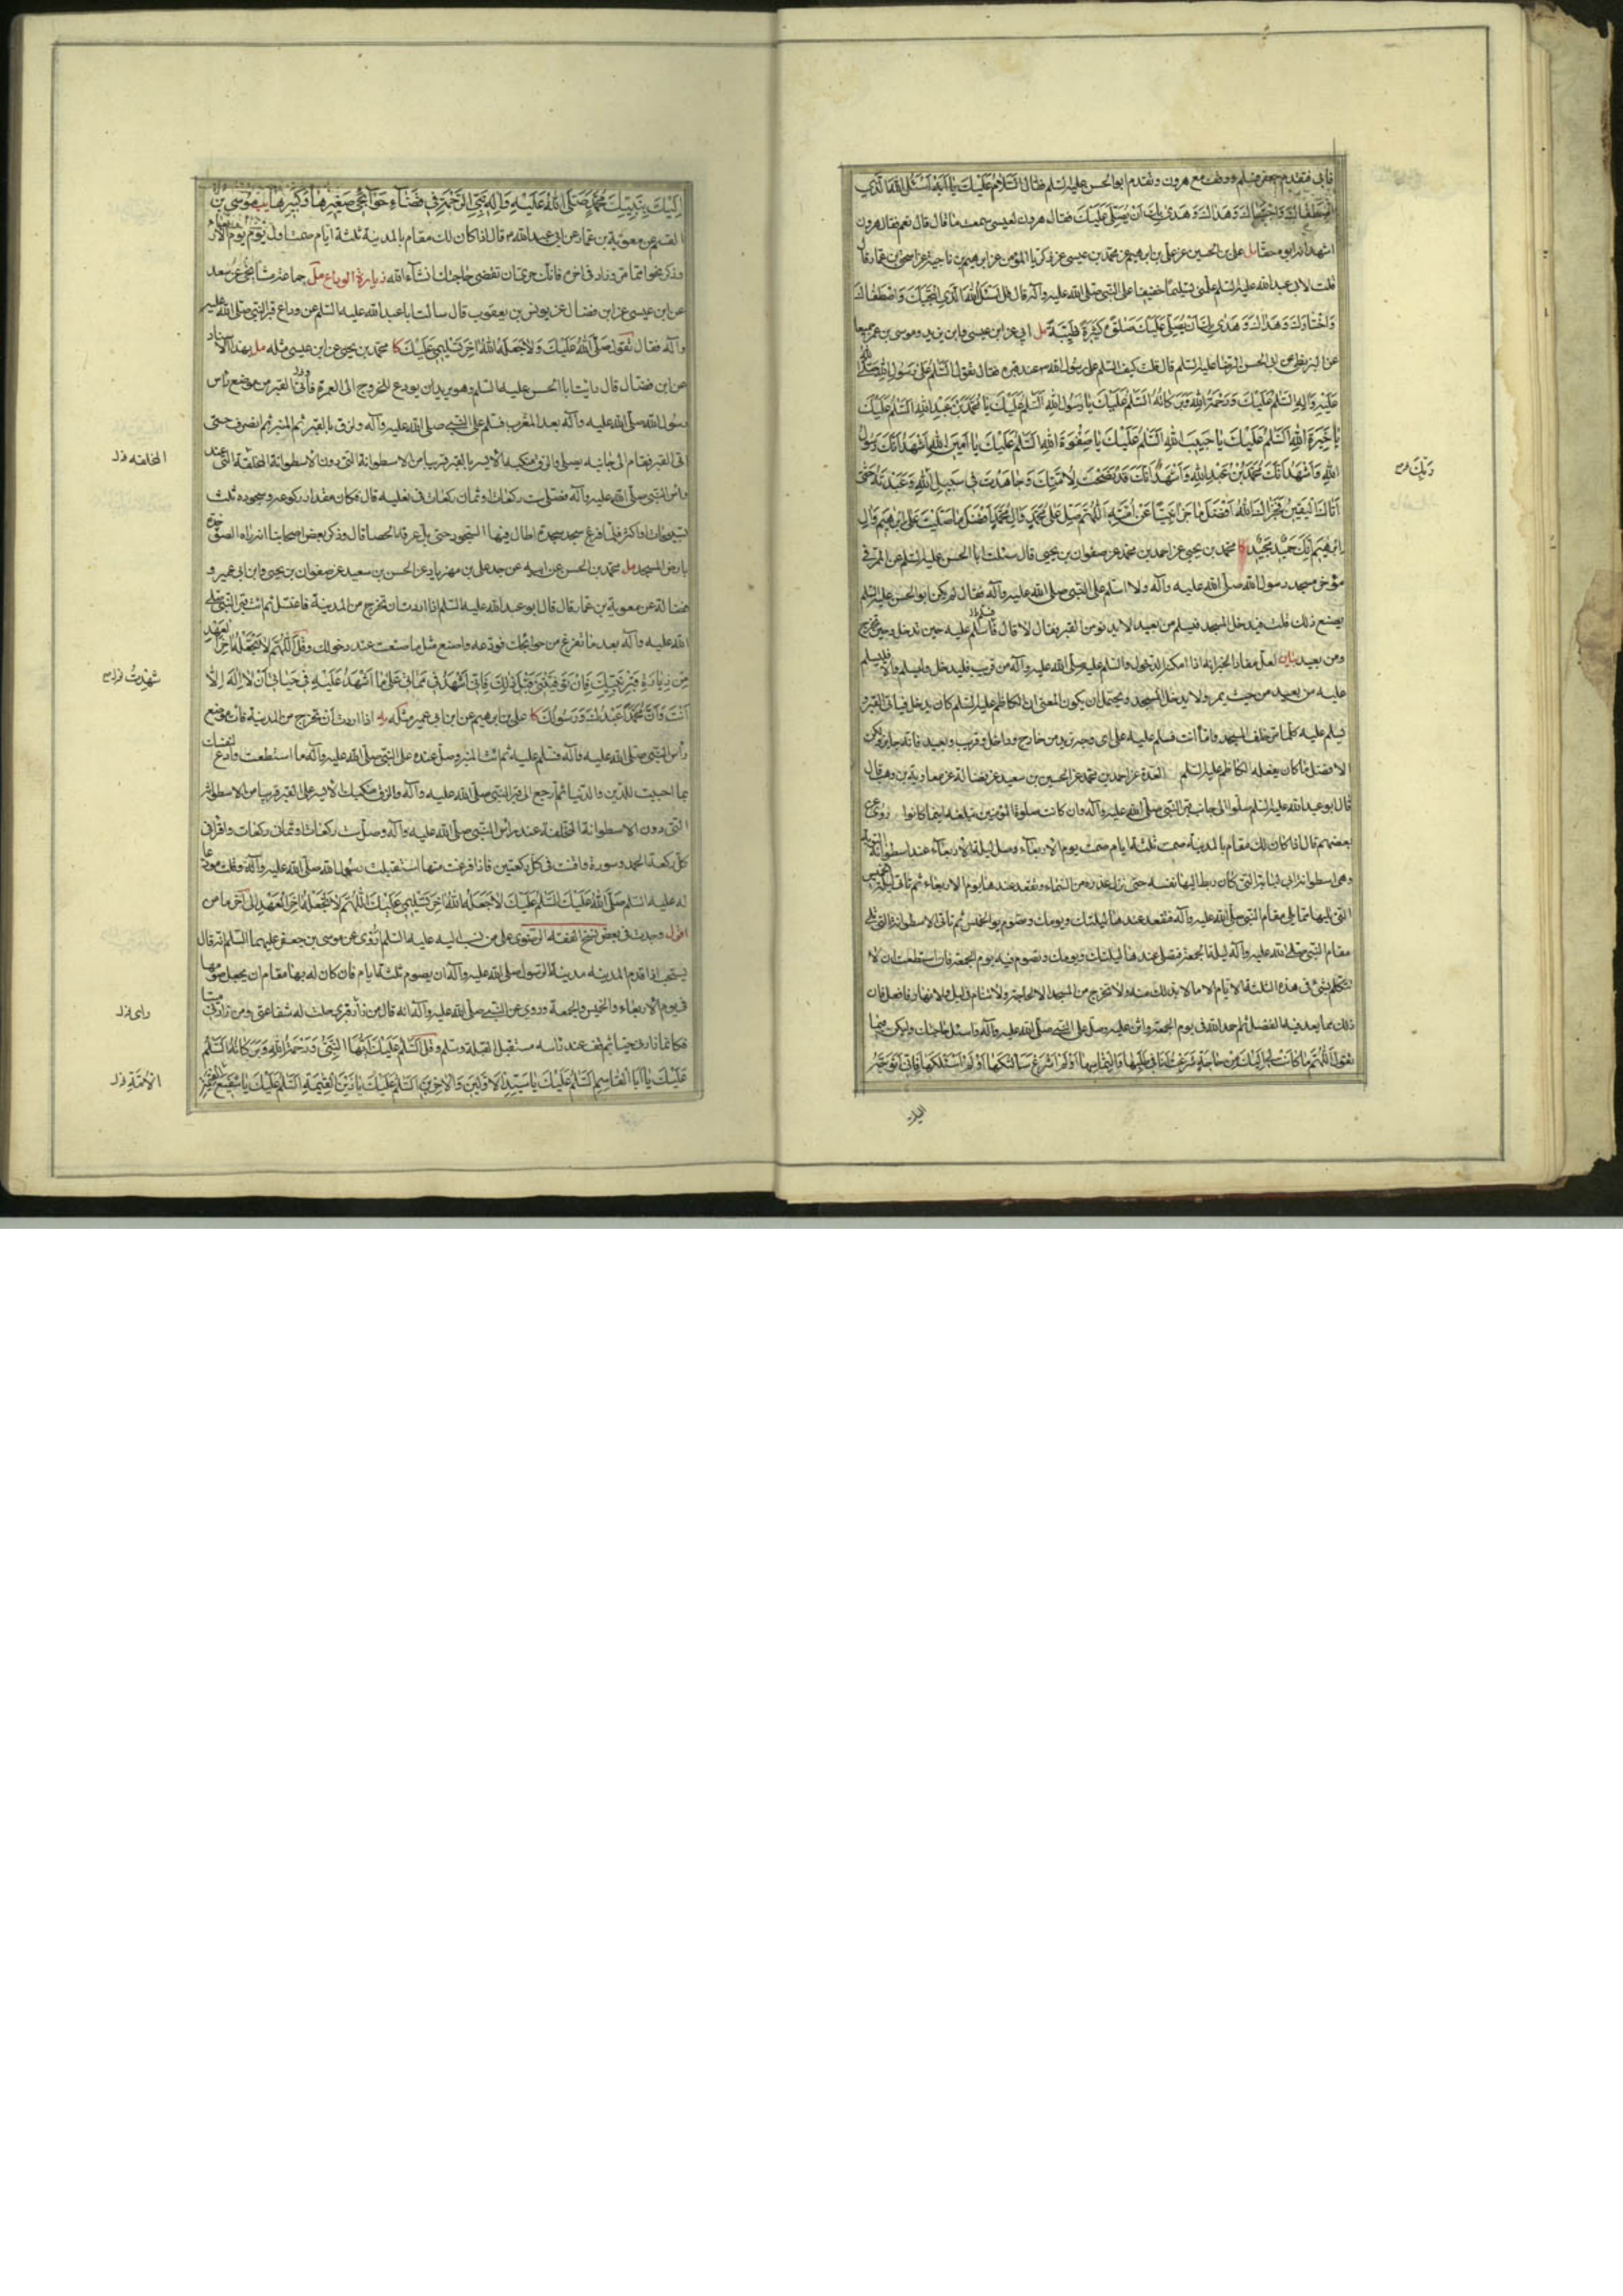 فابى فتقدم جعفر فسلم ووقف مع هرون وتقدم ابو الحسن عليه السلم فقال السّلام عليك يا ابه اسئل الله الّذي
اصطفاك واجتباك وهداك وهدى بك ان يصلّي عليك فقال هرون لعيسى سمعت ما قال قال نعم فقال هرون
اشهد انه ابوه حقا مل علي بن الحسين عن علي بن ابرهيم عن محمد بن عيسى عن زكريا المؤمن عن ابرهيم بن ناجية عن اسحق بن عمار قال
قلت لابي عبد الله عليه السلم علّمني تسليما خفيفا على النبي صلّى الله عليه وآله قال قل اسئل الله الّذي انتجبك واصطفاك
واختارك وهداك وهدى بك ان يصلّي عليك صلوة كثيرة طيّبة مل ابي عن ابن عيسى وابن يزيد وموسى بن عمر جميعا
عن البزنطي عن ابي الحسن الرضا عليه السلم قال قلت كيف السلم على رسول الله ص عند قبره فقال تقول السّلم على رسول الله صلّى الله
عليه وآله السّلم عليك ورحمة الله وبركاته السّلم عليك يا رسول الله السّلم عليك يا محمّد بن عبد الله السّلم عليك
يا خيرة الله السّلم عليك يا حبيب الله السّلم عليك يا صفوة الله السّلم عليك يا امين الله اشهد انّك رسول
الله واشهد انّك محمّد بن عبد الله واشهد انّك قد نصحت لامّتك وجاهدت في سبيل الله وعبدته حتّى
ربّك
اتاك اليقين فجزاك الله افضل ما جزى نبيّا عن امّته اللّهمّ صلّ على محمّد وآل محمّد افضل ما صلّيت على ابرهيم وآل
ابرهيم انّك حميد مجيد كا محمد بن يحيى عن احمد بن محمد عن صفوان بن يحيى قال سئلت ابا الحسن عليه السلم عن الممر في
مؤخر مسجد رسول الله صلّى الله عليه وآله ولا اسلم على النبي صلّى الله عليه وآله فقال لم يكن ابو الحسن عليه السلم
يصنع ذلك قلت فيدخل المسجد فيسلم من بعيد لا يدنو من القبر فقال لا قال سلّم عليه حين تدخل وحين تخرج
ومن بعيد بيان لعلّ مفاد الخبر انه اذا امكنه الدخول والسلم عليه صلّى الله عليه وآله من قريب فليدخل وليسلم والا فليسلم
عليه من بعيد من حيث يمر ولا يدخل المسجد ويحتمل ان يكون المعنى ان الكاظم عليه السلم كان يدخل فياتي القبر و
يسلم عليه كلّما مر خلف المسجد واما انت فسلم عليه على اي وجه تريد من خارج وداخل وقريب وبعيد فانه جايز ولكن
الافضل ما كان يفعله الكاظم عليه السلم العدة عن احمد بن محمد عن الحسين بن سعيد عن فضالة عن معاوية بن وهب قال
قال ابو عبد الله عليه السلم صلّوا الى جانب قبر النبي صلّى الله عليه وآله وان كانت صلوة المؤمنين تبلغه اينما كانوا روي عن
بعضهم قال اذا كان لك مقام بالمدينة صمت ثلثة ايام صمت يوم الاربعاء وصل ليلة الاربعاء عند اسطوانة التوبة
وهي اسطوانة ابي لبابة التي كان ربط اليها نفسه حتى نزل عذره من السماء وتقعد عندها يوم الاربعاء ثم تأتي ليلة الخميس
التي تليها مما يلي مقام النبي صلّى الله عليه وآله فتقعد عندها ليلتك ويومك وتصوم يوم الخميس ثم تأتي الاسطوانة التي تلي
مقام النبي صلى الله عليه وآله ليلة الجمعة فتصلي عندها ليلتك ويومك وتصوم فيه يوم الجمعة فان استطعت ان لا
تتكلم بشيء في هذه الثلثة الايام الا ما لا بد لك منه ولا تخرج من المسجد الا لحاجة ولا تنام في ليل ولا نهار فافعل فان
ذلك مما يعد فيه الفضل ثم احمد الله في يوم الجمعة واثن عليه وصلّ على النبي صلّى الله عليه وآله واسئل حاجتك وليكن فيما
تقول اللّهمّ ما كانت لي اليك من حاجة شرعت انا في طلبها والتماسها او لم اشرع سألتكها او لم اسئلكها فانّي اتوجّه
اليك
اليك بنبيّك محمّد صلّى الله عليه وآله نبيّ الرّحمة في قضاء حوائجي صغيرها وكبيرها يب موسى بن
القسم عن معوية بن عمار عن ابي عبد الله ع قال اذا كان لك مقام بالمدينة ثلثة ايام صمت اول يوم يوم الاربعاء
وذكر نحوا مما مر وزاد في اخره فانك حري ان تقضى حاجتك انشاء الله زيارة الوداع مل جماعة مشايخي عن سعد
عن ابن عيسى عن ابن فضال عن يونس بن يعقوب قال سألت ابا عبد الله عليه السّلم عن وداع قبر النبي صلّى الله عليه
وآله فقال تقول صلّى الله عليك السّلم عليك ولا جعله الله آخر تسليمي عليك كا محمد بن يحيى عن ابن عيسى مثله مل بهذا الاسناد
عن ابن فضال قال رايت ابا الحسن عليه السلم وهو يريد ان يودع للخروج الى العمرة فأتى القبر من موضع رأس
رسول الله صلّى الله عليه وآله بعد المغرب فسلم على النبي صلى الله عليه وآله ولزق بالقبر ثم المنبر ثم انصرف حتى
اتى القبر فقام الى جانبه يصلي والزق منكبه الايسر بالقبر قريبا من الاسطوانة التي دون الاسطوانة المخلّقة التي عند
المخلقه خ ل
رأس النبي صلّى الله عليه وآله فصلّى ست ركعات او ثمان ركعات في نعليه قال فكان مقدار ركوعه وسجوده ثلث
تسبيحات او اكثر فلمّا فرغ سجد سجدة اطال فيها السجود حتى بل عرقه الحصا قال وذكر بعض اصحابنا انه رآه الصق خده
بارض المسجد مل محمد بن الحسن عن ابيه عن جده علي بن مهزيار عن الحسن بن سعيد عن صفوان بن يحيى وابن ابي عمير و
فضالة عن معوية بن عمار قال قال ابو عبد الله عليه السّلم اذا اردت ان تخرج من المدينة فاغتسل ثم ائت قبر النبي صلى
الله عليه وآله بعد ما تفرغ من حوائجك فودّعه واصنع مثل ما صنعت عند دخولك وقل اللّهمّ لا تجعله آخر العهد
من زيارة قبر نبيّك فان توفّيتني قبل ذلك فانّي اشهد في مماتي على ما اشهد عليه في حياتي ان لا اله الا
شهدت
انت وانّ محمّدا عبدك ورسولك كا علي بن ابرهيم عن ابن ابي عمير مثله به اذا اردت ان تخرج من المدينة فأت موضع
رأس النبي صلى الله عليه وآله فسلم عليه ثم ائت المنبر وصل عنده على النبي صلّى الله عليه وآله ما استطعت وادع لنفسك
بما احببت للدّين والدّنيا ثم ارجع الى قبر النبي صلّى الله عليه وآله والزق منكبك الايسر على القبر قريبا من الاسطوانة
التي دون الاسطوانة المخلقة عند رأس النبي صلى الله عليه وآله وصل ست ركعات او ثماني ركعات واقرأ في
كل ركعة الحمد وسورة واقنت في كل ركعتين فاذا فرغت منها استقبلت رسول الله صلّى الله عليه وآله وقلت مودعا
له عليه السلم صلّى الله عليك السّلم عليك لا جعله الله آخر تسليمي عليك اللّهمّ لا تجعله آخر العهد الى آخر ما مر
اقول وجدت في بعض نسخ الفقه الرضوي على من نسب اليه عليه السّلم روي عن موسى بن جعفر عليهما السّلم انه قال
يستحب اذا قدم المدينه مدينة الرسول صلى الله عليه وآله ان يصوم ثلثة ايام فان كان له بها مقام ان يجعل صومها
في يوم الاربعاء والخميس والجمعة وروي عن النبي صلى الله عليه وآله انه قال من زار قبري حلت له شفاعتي ومن زارني ميتا
فكانما زارني حيا ثم قف عند راسه مستقبل القبلة وسلم وقل السّلم عليك ايّها النّبي ورحمة الله وبركاته السّلم
عليك يا ابا القاسم السّلم عليك يا سيّد الاوّلين والاخرين السّلم عليك يا زين القيمة السّلم عليك يا شفيع القيمة
الائمّة خ ل